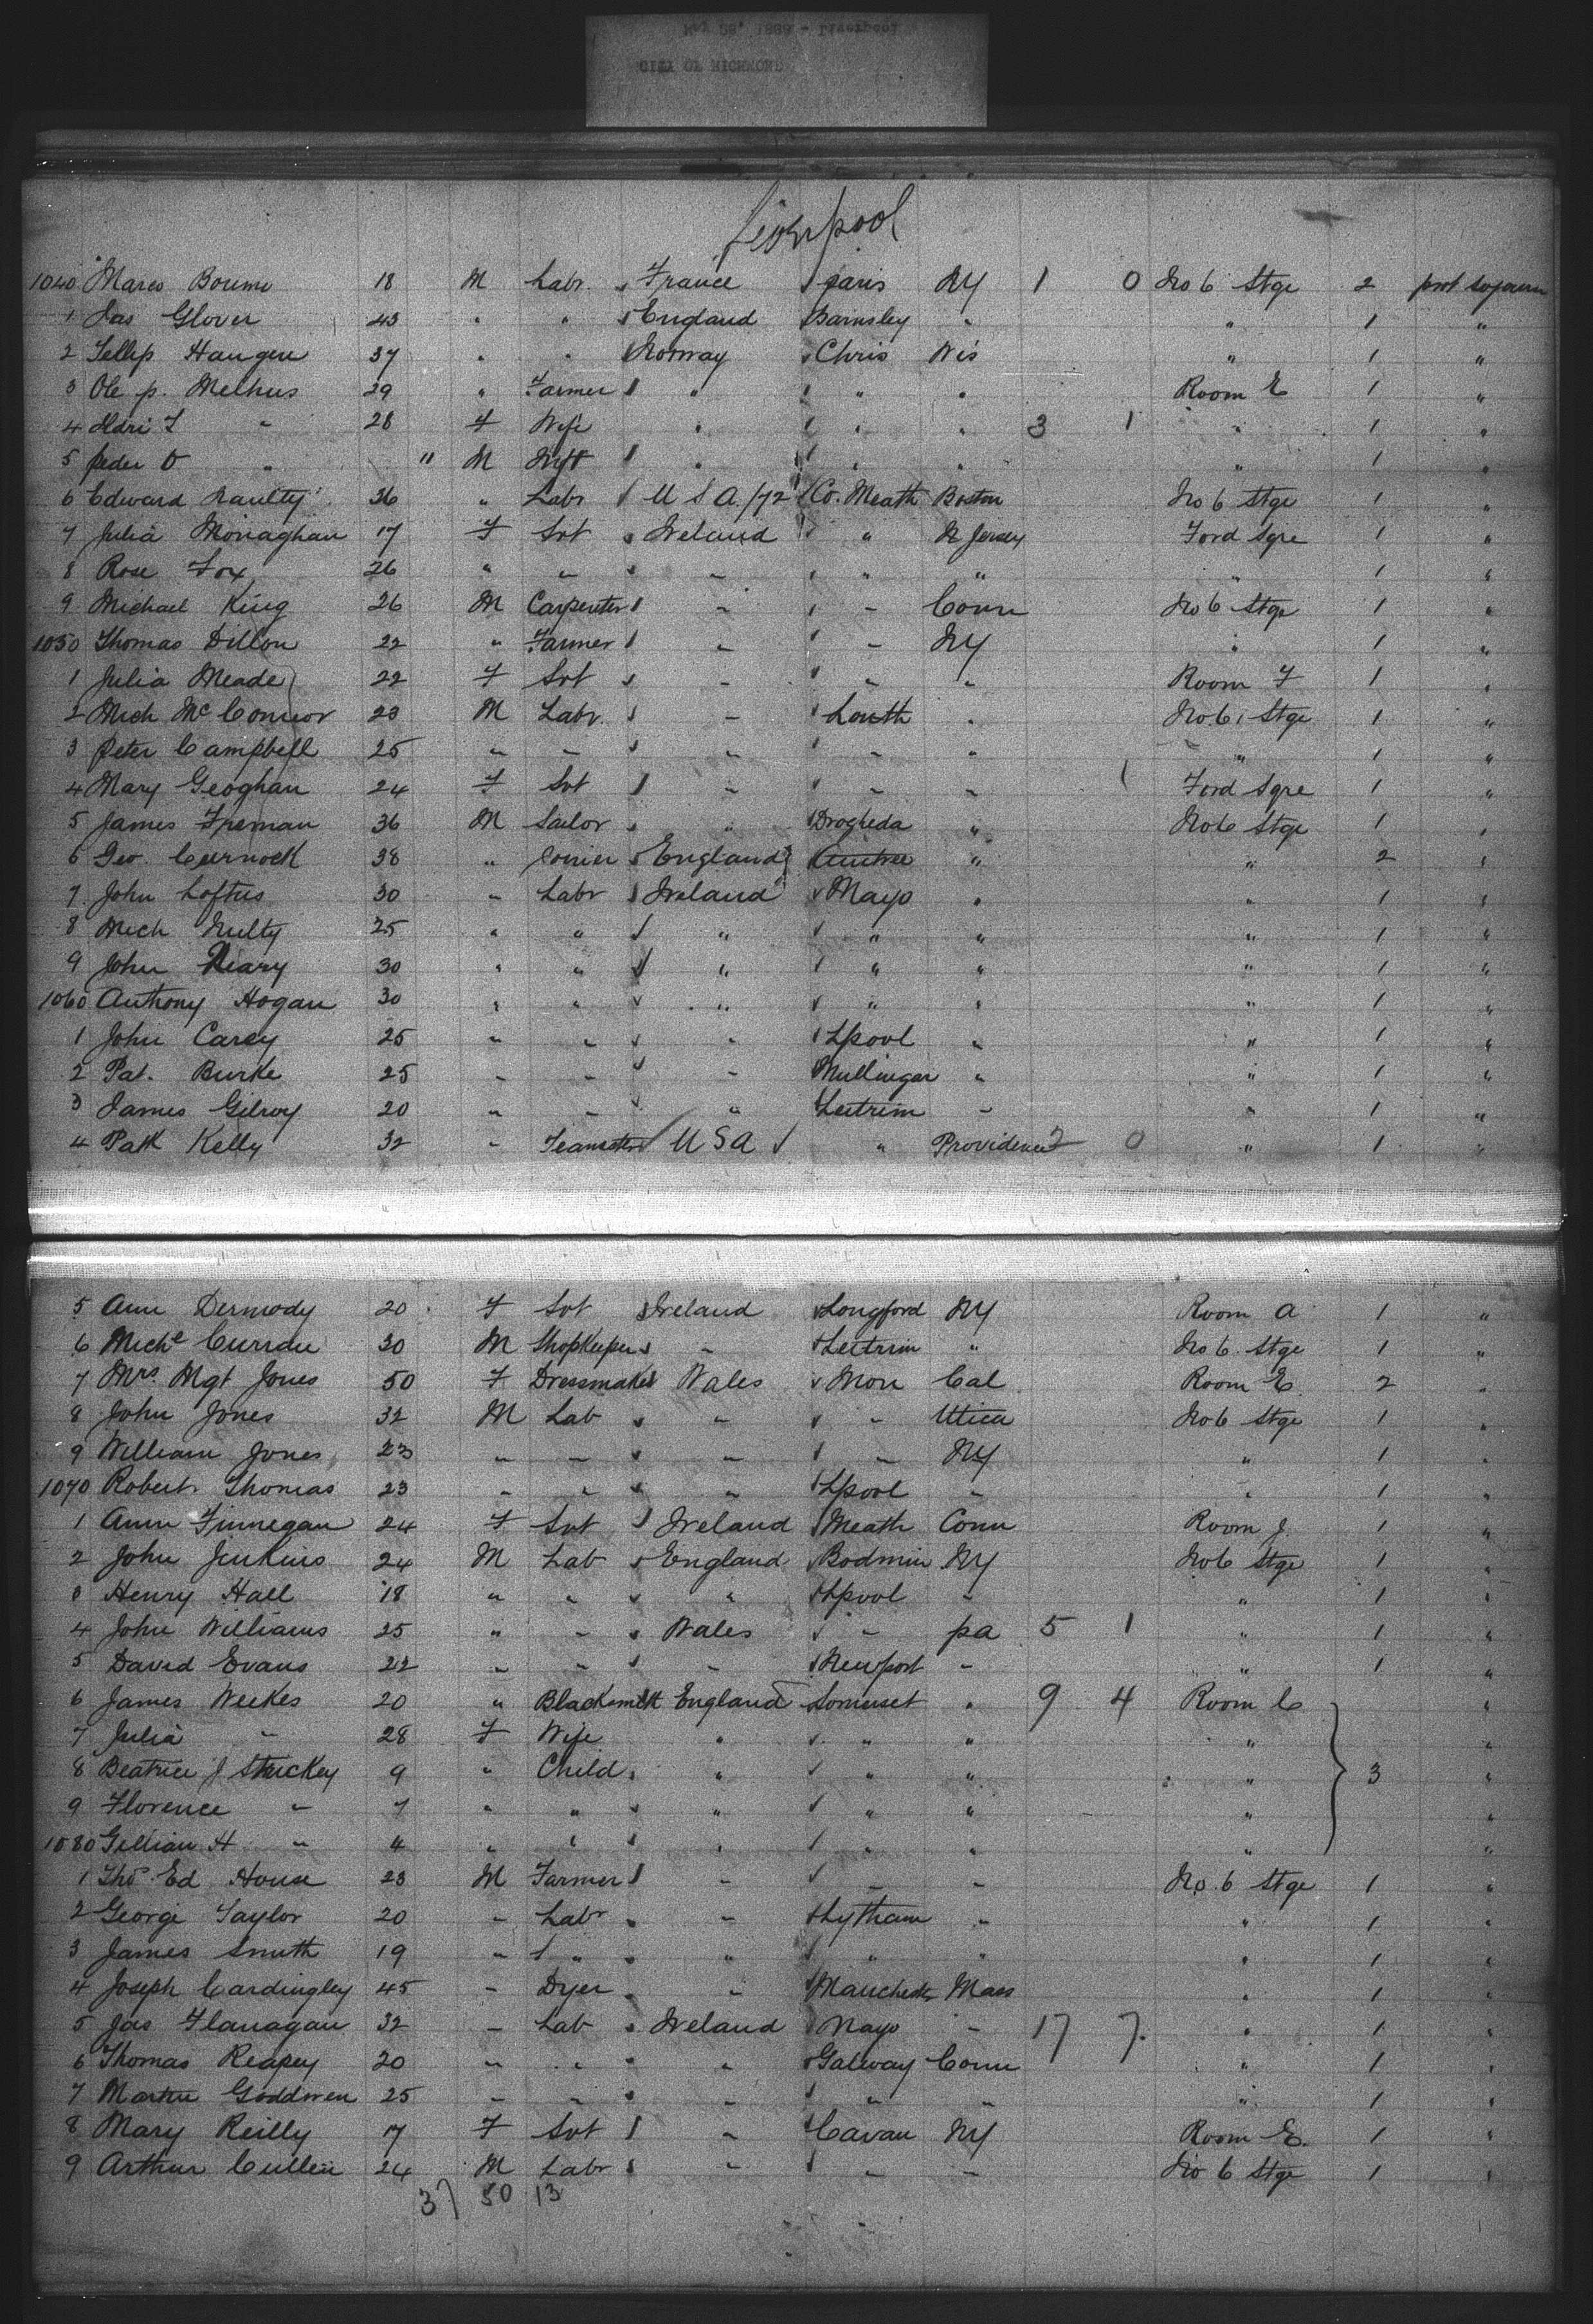 CITY OF RICHMOND
Liverpool
1040 Marco Boume 18 M Labr. France Paris NY 1 0 No 6 Stge 2 prot sojourn
1 Jas Glover 43 " " England Barnsley " " 1 "
2 Tellep Haugen 37 " " Norway Chris Wis " 1 "
3 Ole p. Melhus 29 " Farmer " " " Room E 1 "
4 " 28 F Wife " " " 3 1 " 1 "
5 Peder O " " M Inft " " " " 1 "
6 Edward Naulty 36 " Labr U S A /72 Co. Meath Boston No 6 Stge 1 "
7 Julia Monaghan 17 F Svt Ireland " N Jersey Ford Sqre 1 "
8 Rose Fox 26 " " " " " " 1 "
9 Michael King 26 M Carpenter " " Conn No 6 Stge 1 "
1050 Thomas Dillon 22 " Farmer " " NY " 1 "
1 Julia Meade 22 F Svt " " " Room F 1 "
2 Mich McConnor 23 M Labr. " Louth " No 6 Stge 1 "
3 Peter Campbell 25 " " " " " " 1 "
4 Mary Geoghan 24 F Svt " " " 1 Ford Sqre 1 "
5 James Freman 36 M Sailor " Drogheda " No 6 Stge 1 "
6 Geo. Curnock 38 " England Aintree " " 2 "
7 John Loftus 30 " Labr Ireland Mayo " " 1 "
8 Mich Nulty 25 " " " " " " 1 "
9 John Neary 30 " " " " " " 1 "
1060 Anthony Hogan 30 " " " " " " 1 "
1 John Carey 25 " " " Lpool " " 1 "
2 Pat. Burke 25 " " " Mullingar " " 1 "
3 James Gilroy 20 " " " Leitrim " " 1 "
4 Patk Kelly 32 " Teamster U S A " Providence 2 0 " 1 "
5 Ann Dermody 20 F Svt Ireland Longford NY Room A 1 "
6 Michl Curran 30 M Shopkeeper " Leitrim " No 6 Stge 1 "
7 Mrs. Mgt Jones 50 F Dressmaker Wales Mon Cal Room E 2 "
8 John Jones 32 M Lab " " Utica No 6 Stge 1 "
9 William Jones 23 " " " " NY " 1 "
1070 Robert Thomas 23 " " " Lpool " " 1 "
1 Ann Finnegan 24 F Svt Ireland Meath Conn Room J. 1 "
2 John Jenkins 24 M Lab England Bodmin NY No 6 Stge 1 "
3 Henry Hall 18 " " " Lpool " " 1 "
4 John Williams 25 " " Wales " pa 5 1 " 1 "
5 David Evans 22 " " " Newport " " 1 "
6 James Weekes 20 " Blacksmith England Somerset " 9 4 Room C "
7 Julia " 28 F Wife " " " " "
8 Beatrice J Stuckey 9 " Child " " " " 3 "
9 Florence " 7 " " " " " " "
1080 Gillian H " 4 " " " " " " "
1 Tho Ed House 23 M Farmer " " " No. 6 Stge 1 "
2 George Taylor 20 " Labr " Lytham " " 1 "
3 James Smith 19 " " " " " " 1 "
4 Joseph Cardingley 45 " Dyer " Manchester Mass " 1 "
5 Jas Flanagan 32 " Lab Ireland Mayo " 17 7. " 1 "
6 Thomas Reapey 20 " " " Galway Conn " 1 "
7 Martin Goddwen 25 " " " " " " 1 "
8 Mary Reilly 17 F Svt " Cavan NY Room E. 1 "
9 Arthur Cullen 24 M Labr " " " No 6 Stge 1 "
37 50 13